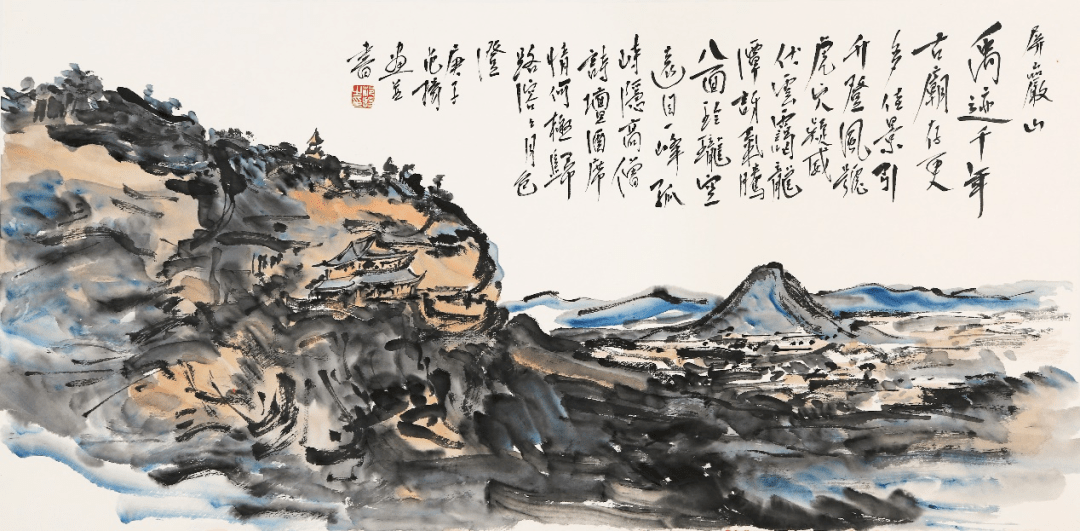 屏巖山
禹迹千年
古廟存更
多佳景引
升登風號
虎穴疑威
伏雲靄龍
潭訝氣騰
八面玲瓏空
遠目一峰孤
峙隱高僧
詩壇酒席
情何極歸
路溶々月色
澄
庚子
畫並
書